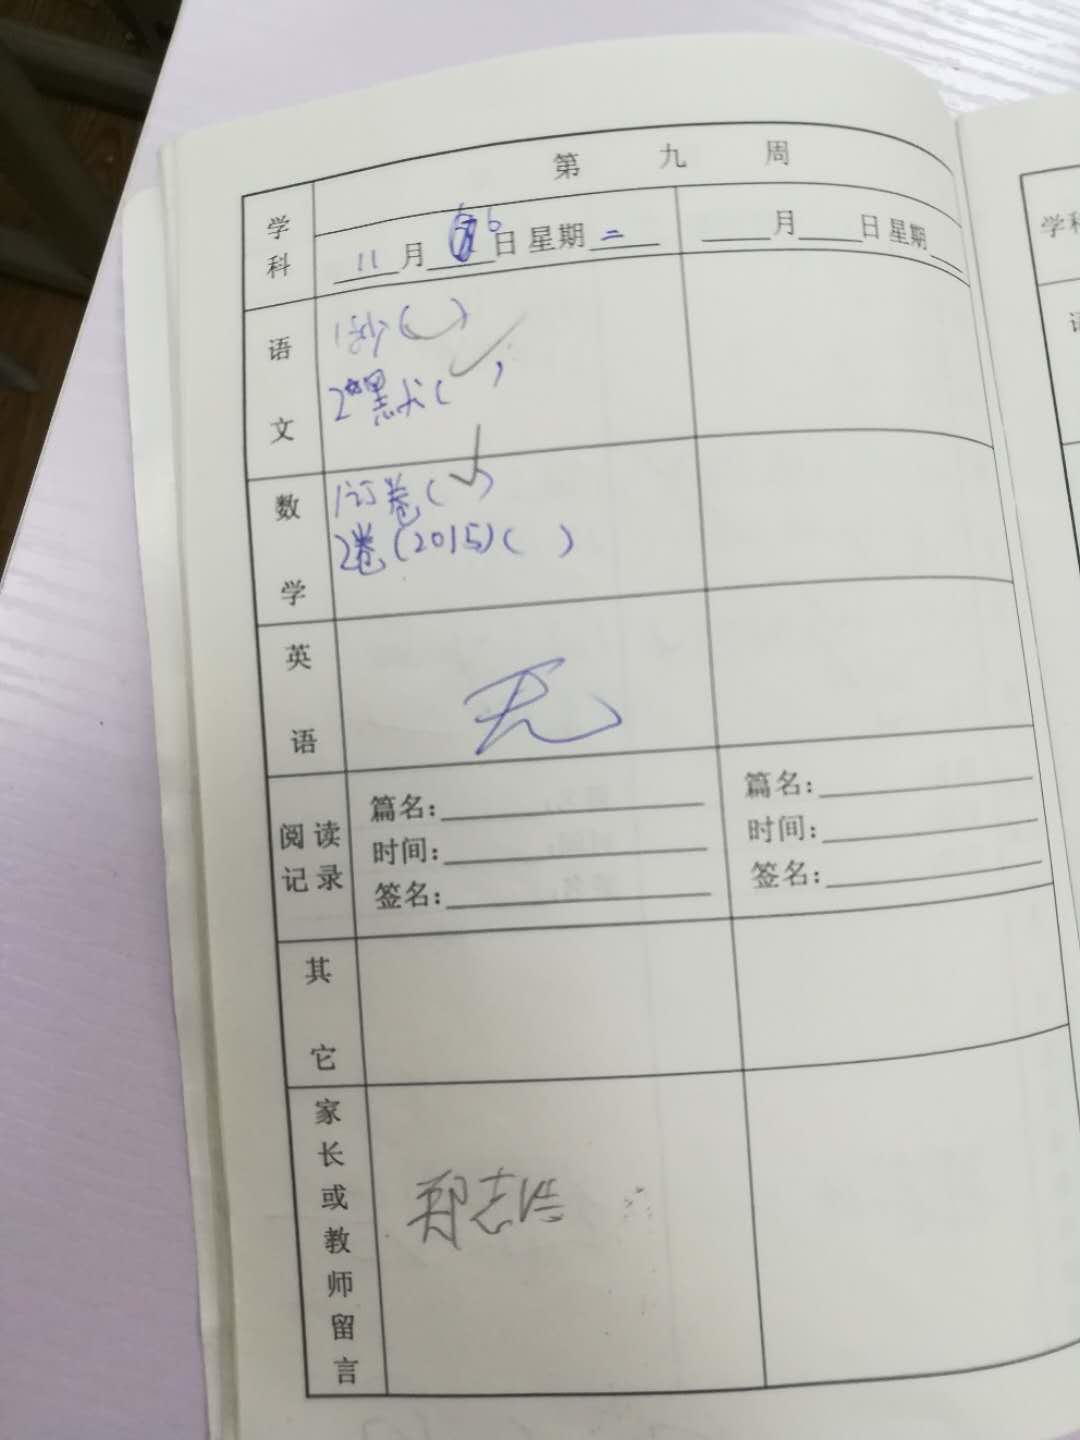 第九周
学科
11月6日星期二
___月___日星期___
语文
1抄(✓)
2默(✓)
数学
1订卷(✓)
2卷(2015)( )
英语
无
阅读记录
篇名:
时间:
签名:
篇名:
时间:
签名:
其它
家长或教师留言
郑志浩
学科